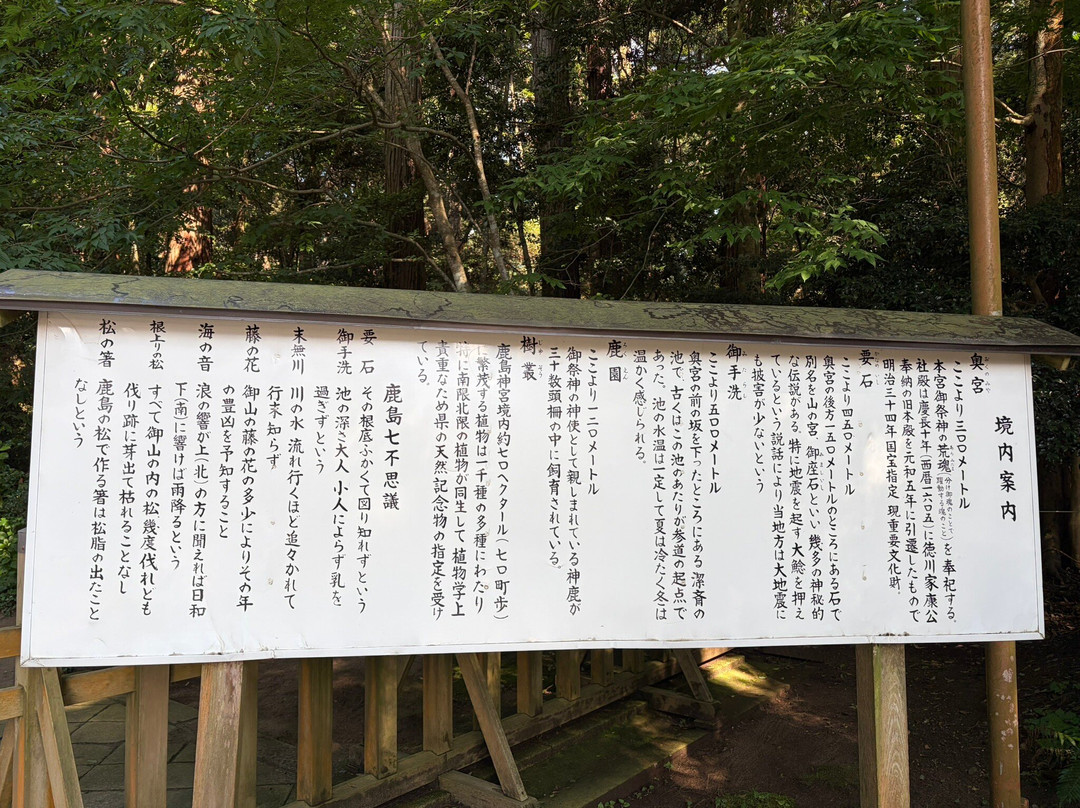 境内案内
奥宮
おくのみや
ここより 三〇〇メートル
本宮御祭神の荒魂(分け御魂のことで躍動する魂のこと)を奉祀する。
社殿は慶長十年(西暦一六〇五)に徳川家康公
奉納の旧本殿を元和五年に引遷したもので
明治三十四年国宝指定 現重要文化財。
要石
かなめいし
ここより 四五〇メートル
奥宮の後方一五〇メートルのところにある石で
別名を山の宮、御座石といい 幾多の神秘的
みまし
な伝説がある。特に地震を起す大鯰を押え
ているという説話により当地方は大地震に
も披害が少ないという
御手洗
みたらし
ここより五〇〇メートル
奥宮の前の坂を下ったところにある 潔斉の
池で、古くはこの池のあたりが参道の起点で
あった。池の水温は一定して夏は冷たく冬は
温かく感じられる。
鹿園
ろくえん
ここより 一二〇メートル
御祭神の神使として親しまれている神鹿が
三十数頭柵の中に飼育されている。
樹叢
じゅそう
鹿島神宮境内約七〇ヘクタール(七〇町歩)
に繁茂する植物は一千種の多種にわたり
特に南限北限の植物が同生して植物学上
貴重なため県の天然記念物の指定を受け
ている。
鹿島七不思議
要石 その根底ふかくて図り知れずという
御手洗 池の深さ大人 小人によらず乳を
過ぎずという
末無川 川の水 流れ行くほど追々かれて
行末知らず
藤の花 御山の藤の花の多少によりその年
の豊凶を予知すること
海の音 浪の響が上(北)の方に聞えれば日和
下(南)に響けば雨降るという
根上りの松 すべて御山の内の松幾度伐れども
伐り跡に芽出て枯れることなし
松の箸 鹿島の松で作る箸は松脂の出たこと
なしという